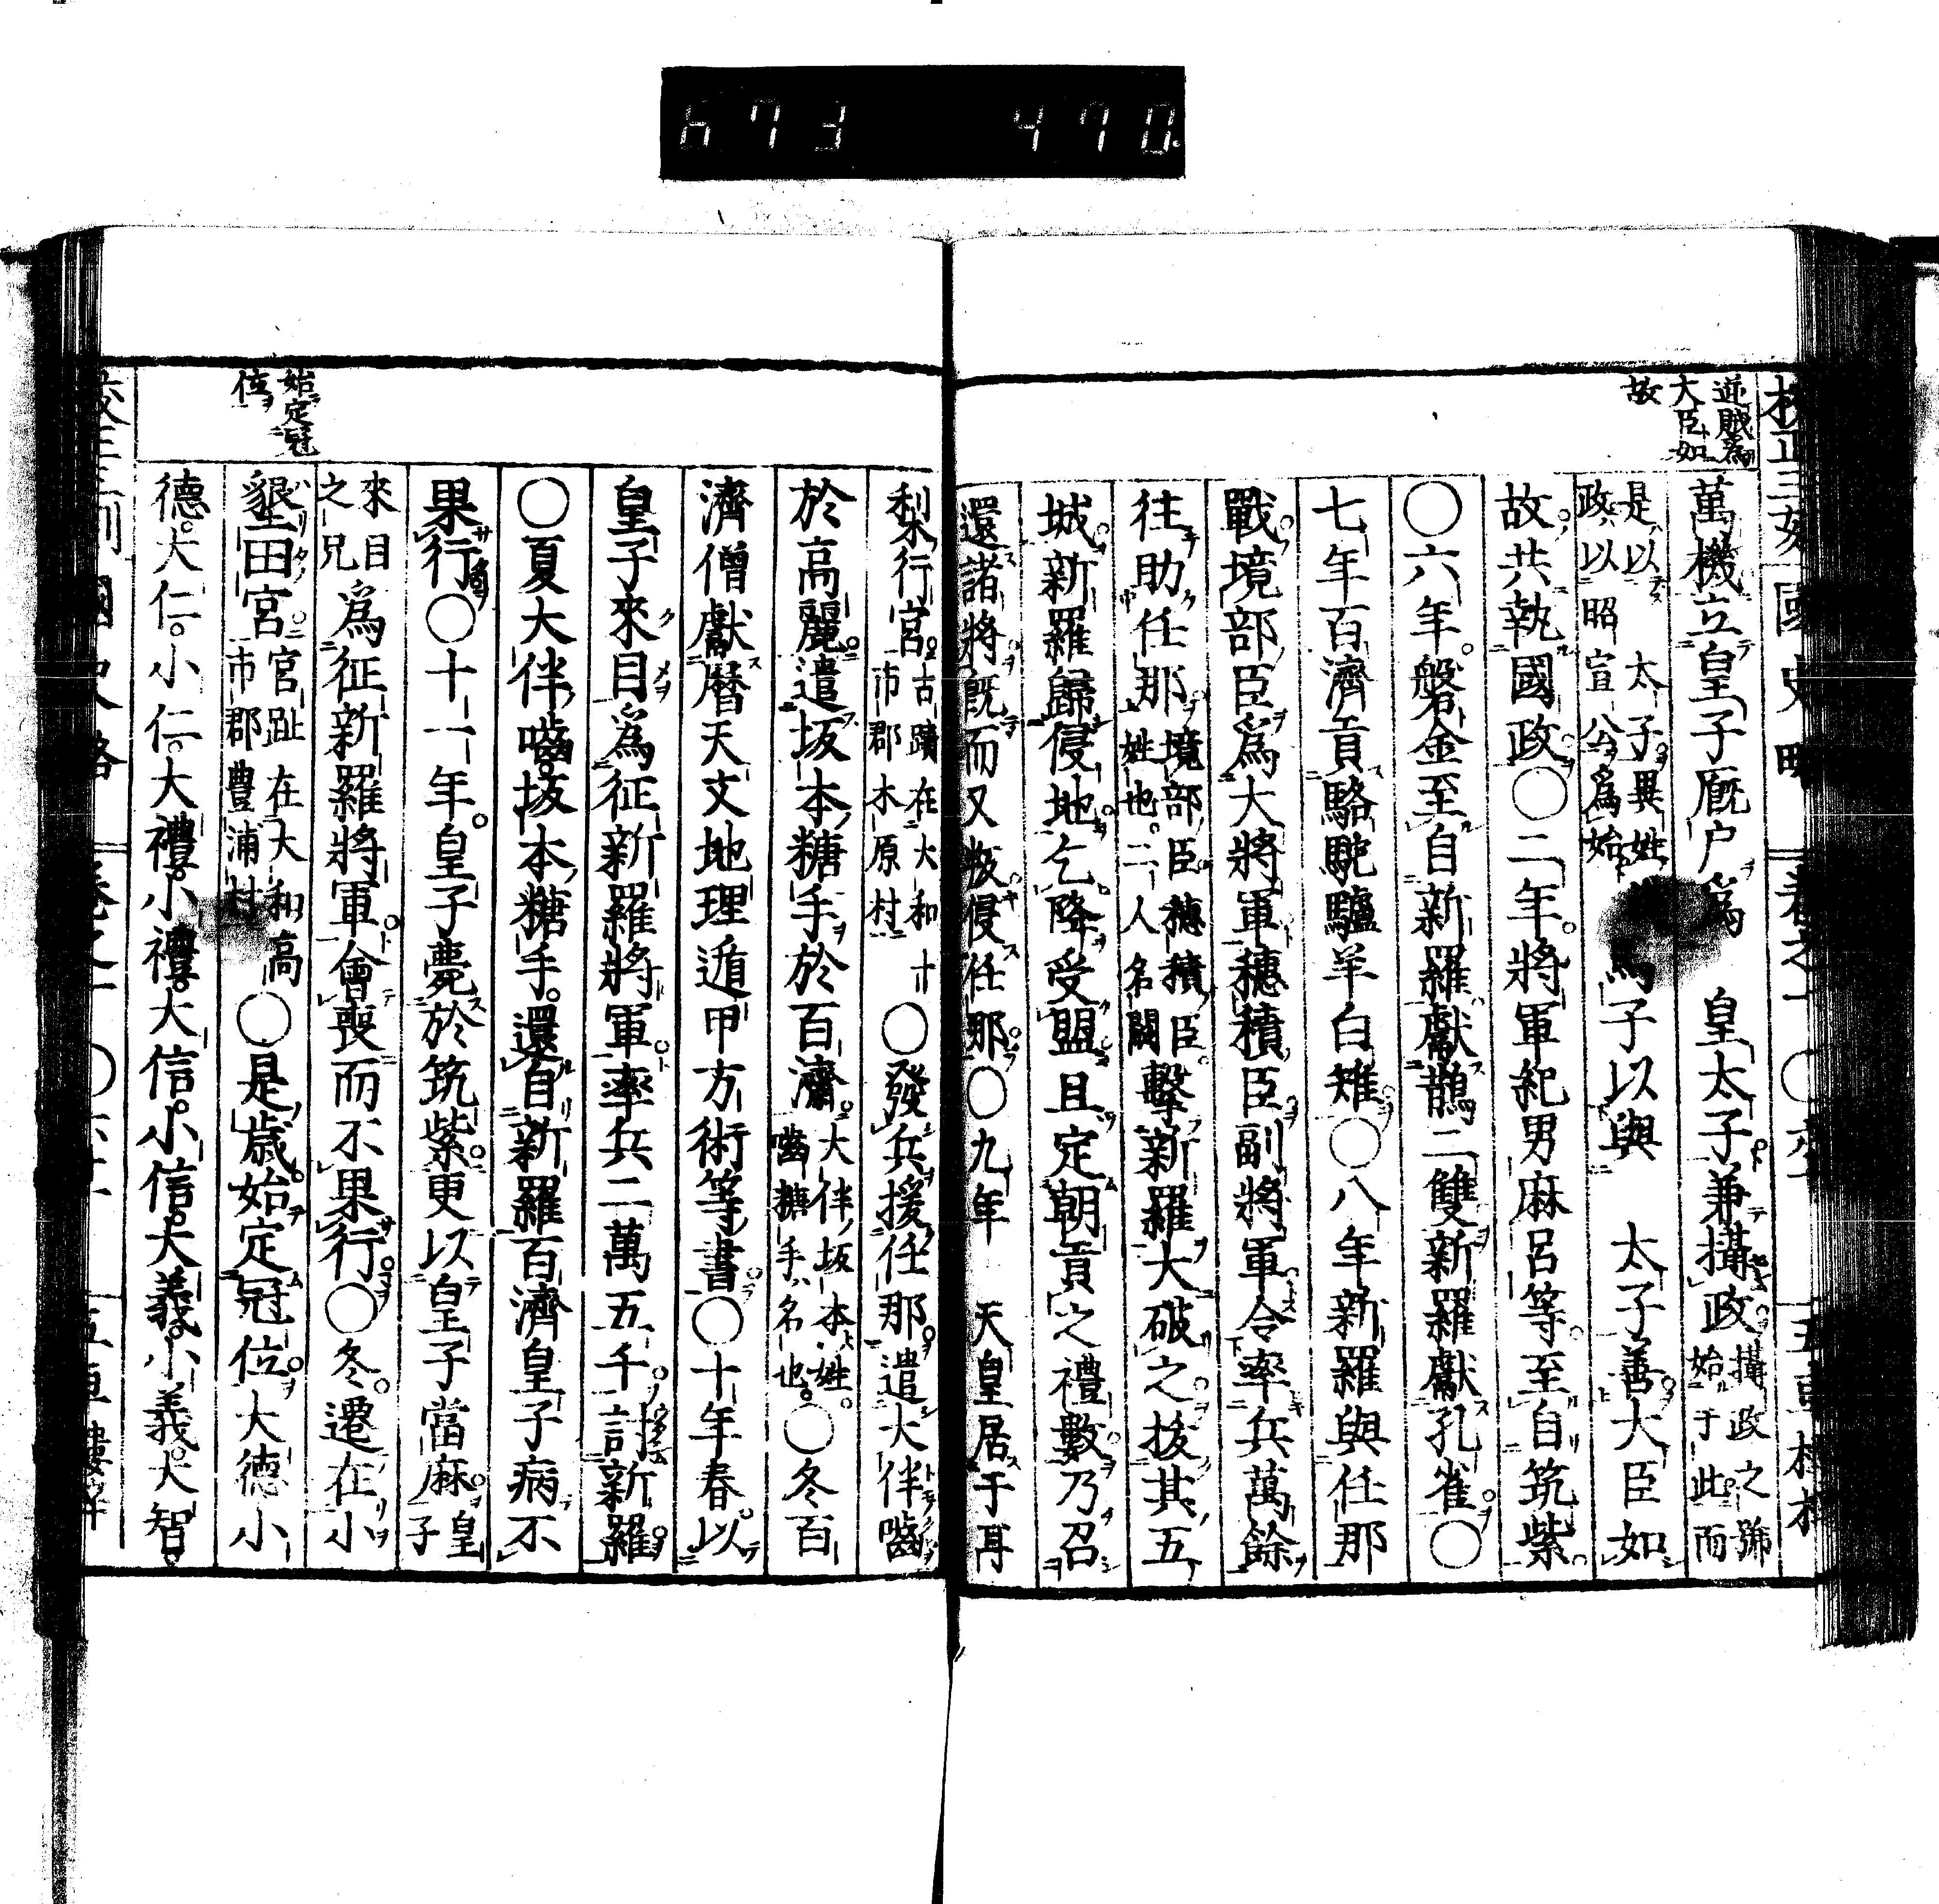 673 470
逆賊爲
大臣如
故
萬機立皇子厩戸爲 皇太子兼攝政攝政之號始于此而
是以 太子異姓政以昭宣公爲始 馬子以與 太子善大臣如
故共執國政○二年將軍紀男麻呂等至自筑紫
○六年磐金至自新羅獻鵲二雙新羅獻孔雀○
七年百濟貢駱駝驢羊白雉○八年新羅與任那
戰境部臣爲大將軍穗積臣副將軍令率兵萬餘
往助任那境部臣穗積臣姓也二人名闕擊新羅大破之拔其五
城新羅歸侵地乞降受盟且定朝貢之禮數乃召
還諸將既而又叛侵任那○九年 天皇居于耳
梨行宮古蹟在大和十市郡木原村○發兵援任那遣大伴囓
於高麗遣坂本糠手於百濟大伴坂本姓囓糠手名也○冬百
濟僧獻曆天文地理遁甲方術等書○十年春以
皇子來目爲征新羅將軍率兵二萬五千討新羅
○夏大伴囓坂本糠手還自新羅百濟皇子病不
果行○十一年皇子薨於筑紫更以皇子當麻皇子
來目之兄爲征新羅將軍會喪而不果行○冬遷在小
墾田宮宮趾在大和高市郡豐浦村○是歳始定冠位大德小
德大仁小仁大禮小禮大信小信大義小義大智
始定冠
位